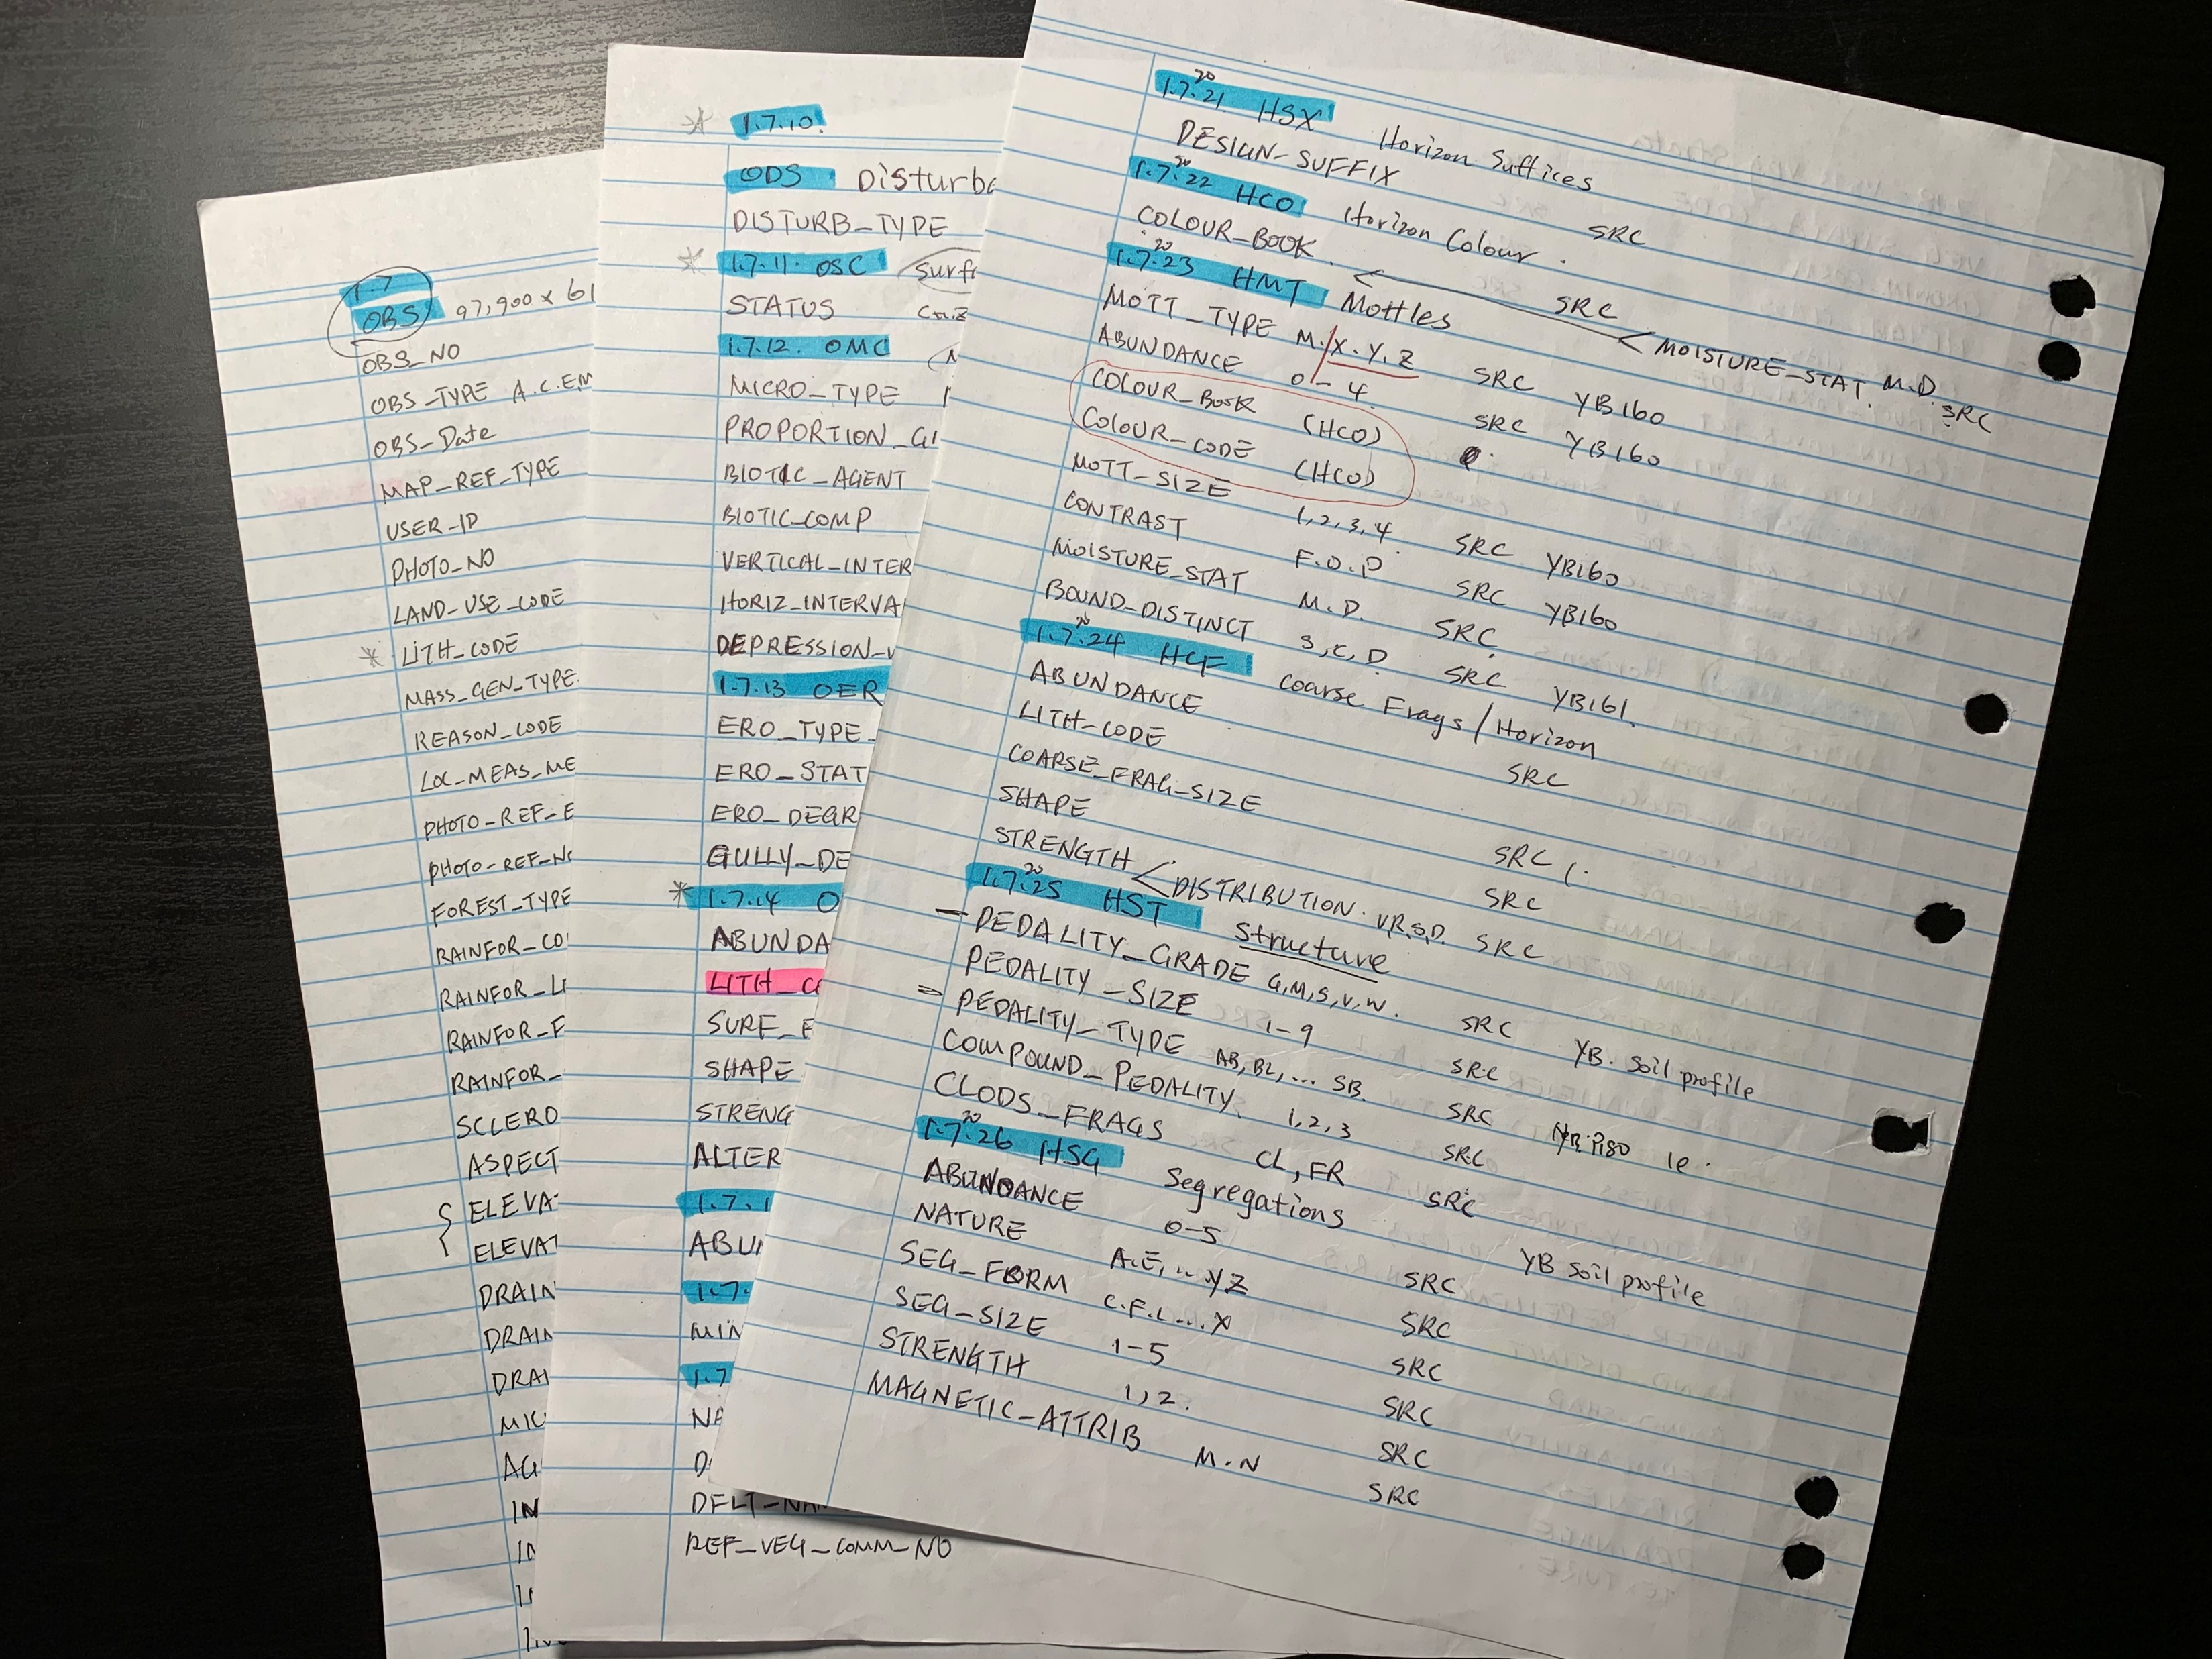 1.7
OBS 97,900 x 61
OBS_NO
OBS_TYPE A.C.EM
OBS_Date
MAP_REF_TYPE
USER_ID
PHOTO_NO
LAND_USE_CODE
* LITH_CODE
MASS_GEN_TYPE
REASON_CODE
LOC_MEAS_ME
PHOTO_REF_E
PHOTO_REF_N
FOREST_TYPE
RAINFOR_CO
RAINFOR_LI
RAINFOR_F
RAINFOR_
SCLERO
ASPECT
ELEVA
ELEVAT
DRAIN
DRAIN
DRAI
MIC
AG
IN
IN
* 1.7.10.
ODS Disturba
DISTURB_TYPE
* 1.7.11. OSC Surf
STATUS
1.7.12. OMC
MICRO_TYPE
PROPORTION_GI
BIOTIC_AGENT
BIOTIC_COMP
VERTICAL_INTER
HORIZ_INTERVA
DEPRESSION_
1.7.13 OER
ERO_TYPE
ERO_STAT
ERO_DEGR
GULLY_DE
* 1.7.14 O
ABUNDA
LITH_C
SURF_E
SHAPE
STRENG
ALTER
1.7.1
ABU
1.7.
MIN
1.7
NA
D
REF_VEG_COMM_NO
20
1.7.21 HSX Horizon Suffices
DESIGN_SUFFIX SRC
20
1.7.22 HCO Horizon Colour.
COLOUR_BOOK. SRC
MOISTURE_STAT. M.D. SRC
20
1.7.23 HMT Mottles
MOTT_TYPE M./X.Y.Z SRC YB160
ABUNDANCE 0-4. SRC YB160
COLOUR_BOOK (HCO)
COLOUR_CODE (HCO)
MOTT_SIZE 1,2,3,4. SRC YB160
CONTRAST F.D.P SRC YB160
MOISTURE_STAT M.D. SRC
BOUND_DISTINCT S,C,D SRC YB161.
20
1.7.24 HCF Coarse Frags/Horizon
ABUNDANCE SRC
LITH_CODE
COARSE_FRAG_SIZE SRC
SHAPE SRC
STRENGTH SRC
DISTRIBUTION. V,R,S,D.
20
1.7.25 HST Structure
PEDALITY_GRADE G,M,S,V,W. SRC YB. Soil profile
PEDALITY_SIZE 1-9 SRC
PEDALITY_TYPE AB,BL,... SB. SRC
COMPOUND_PEDALITY. 1,2,3 SRC
CLODS_FRAGS CL,FR SRC
20
1.7.26 HSG Segregations
ABUNDANCE 0-5 SRC YB Soil profile
NATURE A.E,...YZ SRC
SEG_FORM C.F.L...X SRC
SEG_SIZE 1-5 SRC
STRENGTH 1,2. SRC
MAGNETIC_ATTRIB M.N SRC